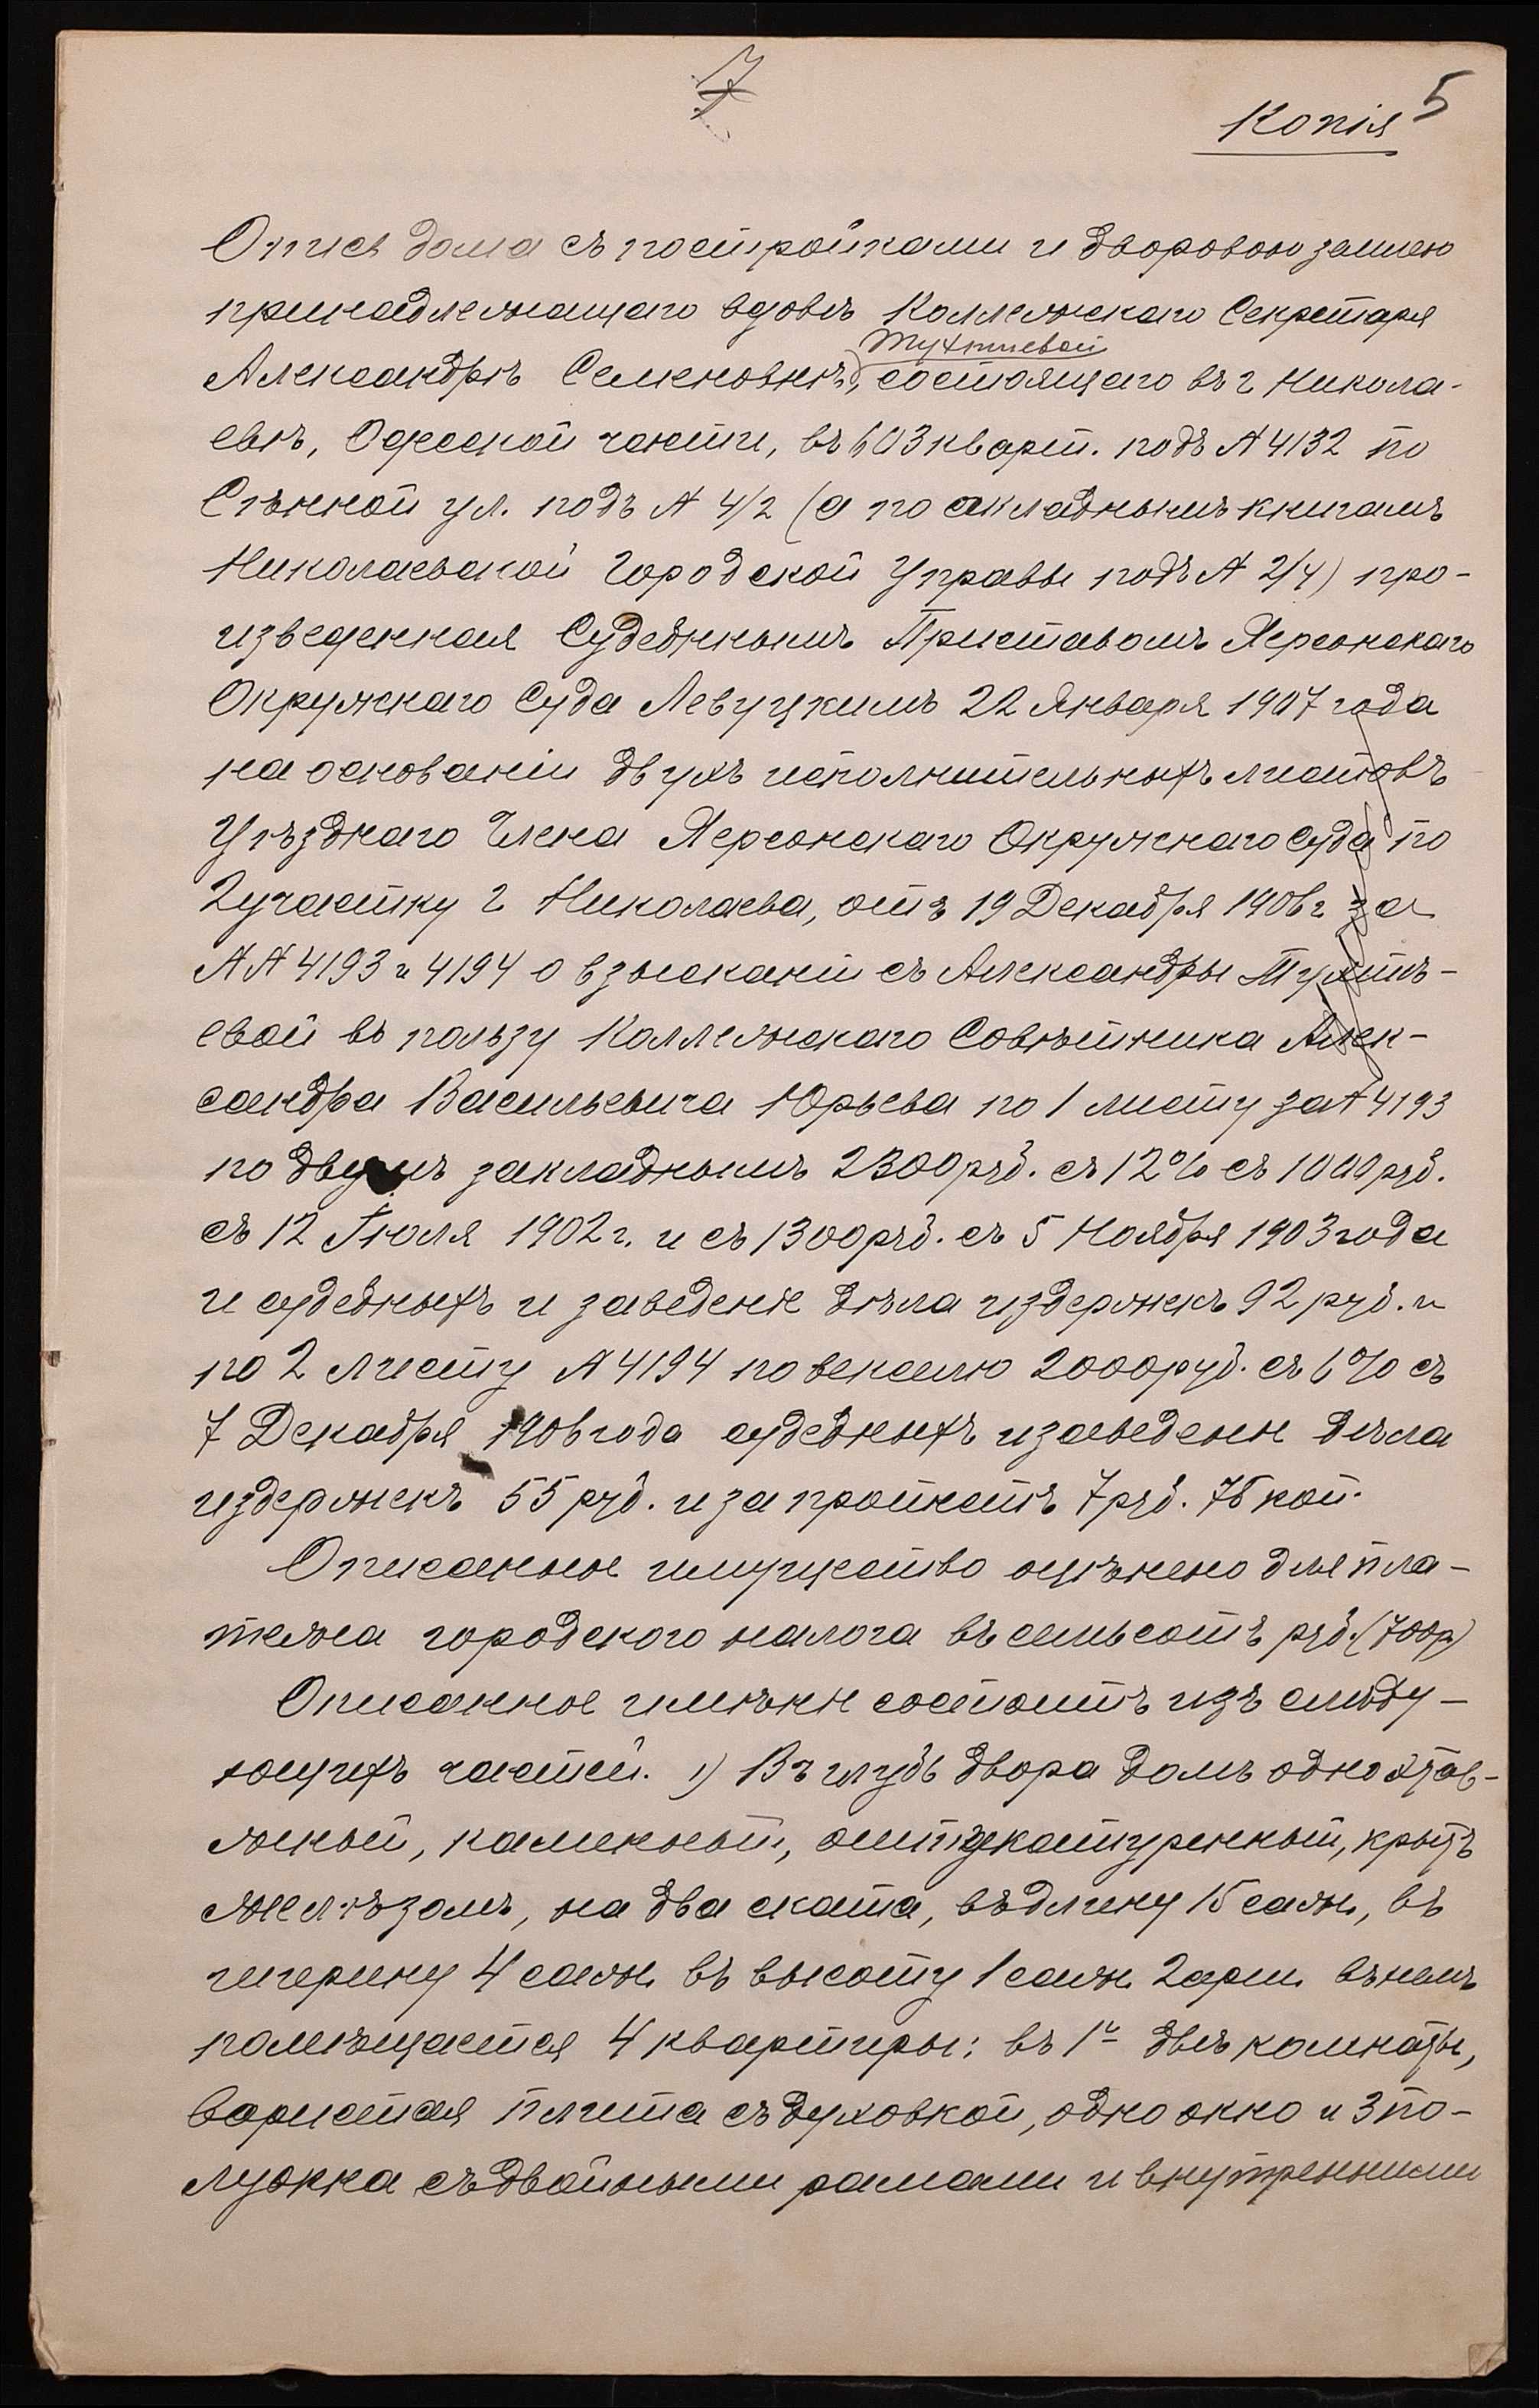 7
Копія 5
Опись дома съ постройками и дворовою землею
принадлежащаго вдовѣ Коллежскаго Секретаря
Тухтиевой
Александрѣ Семеновнѣ, состоящаго въ г Никола-
евѣ, Одесской части, въ 603 кварт. подъ № 4132 по
Сѣнной ул. подъ № 4/2 (а по окладнымъ книгамъ
Николаевской Городской Управы подъ № 2/4) про-
изведенная Судебнымъ Приставомъ Херсонскаго
Окружнаго Суда Левуцкимъ 22 Января 1907 года
на основаніи двухъ исполнительныхъ листовъ
Уѣзднаго Члена Херсонскаго Окружнаго Суда по
2 участку г Николаева, отъ 19 Декабря 1906 г за
№№ 4193 и 4194 о взысканіи съ Александры Тухтѣ-
евой въ пользу Коллежскаго Совѣтника Алек-
сандра Васильевича Юрьева по 1 листу за № 4193
по двумъ закладнымъ 2300 руб. съ 12% съ 1000 руб.
съ 12 Іюля 1902 г. и съ 1300 руб. съ 5 Ноября 1903 года
и судебныхъ и заведеніе дѣла издержекъ 92 руб. и
по 2 листу № 4194 по векселю 2000 руб. съ 6% съ
7 Декабря 1906 года судебныхъ и заведеніе дѣла
издержекъ 55 руб. и за протестъ 7 руб. 75 коп.
Описанное имущество оцѣнено для пла-
тежа городского налога въ семьсотъ руб. (700 р)
Описанное имѣніе состоитъ изъ слѣду-
ющихъ частей. 1) Въ глубь двора домъ одноэтаж-
жный, каменный, оштукатуренный, крытъ
желѣзомъ, на два ската, въ длину 15 саж., въ
ширину 4 саж. въ высоту 1 саж. 2 арш. въ немъ
помѣщается 4 квартиры: въ 1й двѣ комнаты,
вористая плита съ духовкой, одно окно и 3 по-
луокна съ двойными рамами и внутренними